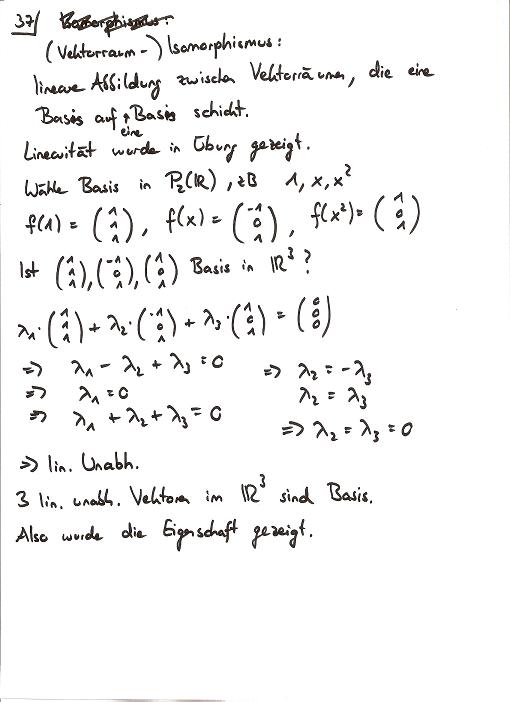 37/ Isomorphismus:
(Vektorraum-) Isomorphismus:
lineare Abbildung zwischen Vektorräumen, die eine
Basis auf eine Basis schickt.
Linearität wurde in Übung gezeigt.
Wähle Basis in P₂(ℝ), zB 1, x, x²
f(1) = (1 1 1), f(x) = (-1 0 1), f(x²) = (1 0 1)
Ist (1 1 1), (-1 0 1), (1 0 1) Basis in ℝ³?
λ₁·(1 1 1) + λ₂·(-1 0 1) + λ₃·(1 0 1) = (0 0 0)
=> λ₁ - λ₂ + λ₃ = 0 => λ₂ = -λ₃
=> λ₁ = 0 λ₂ = λ₃
=> λ₁ + λ₂ + λ₃ = 0 => λ₂ = λ₃ = 0
=> lin. Unabh.
3 lin. unabh. Vektoren im ℝ³ sind Basis.
Also wurde die Eigenschaft gezeigt.